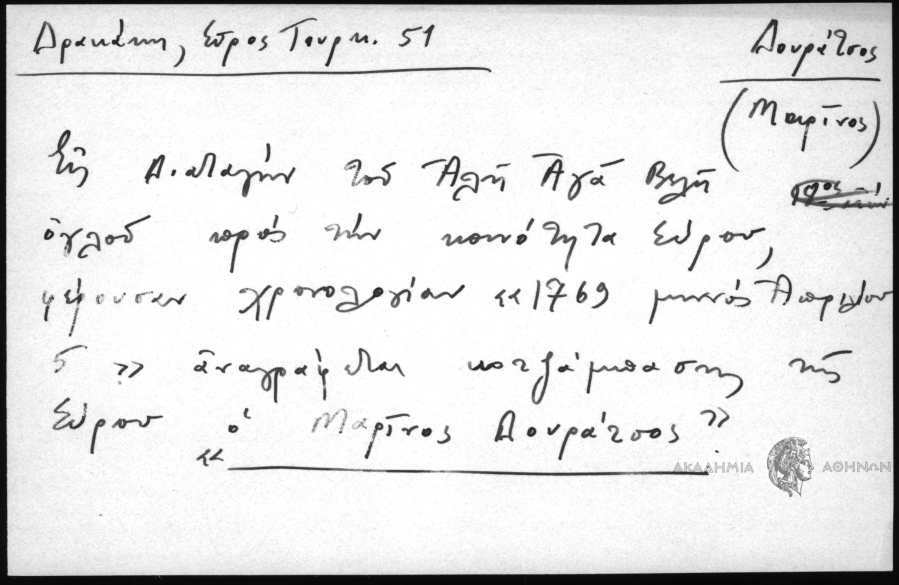 Δρακάκη, Σύρος Τουρκ. 51
Δουράτσος
(Μαρῖνος)
Εἰς Διαταγὴν τοῦ Ἀλῆ Ἀγᾶ Βελῆ
ὀγλοῦ πρὸς τὴν κοινότητα Σύρου,
φέρουσαν χρονολογίαν «1769 μηνὸς Ἀπριλίου
5» ἀναγράφεται κοτζάμπασης τῆς
Σύρου «ὁ Μαρῖνος Δουράτσος»
ΑΚΑΔΗΜΙΑ ΑΘΗΝΩΝ